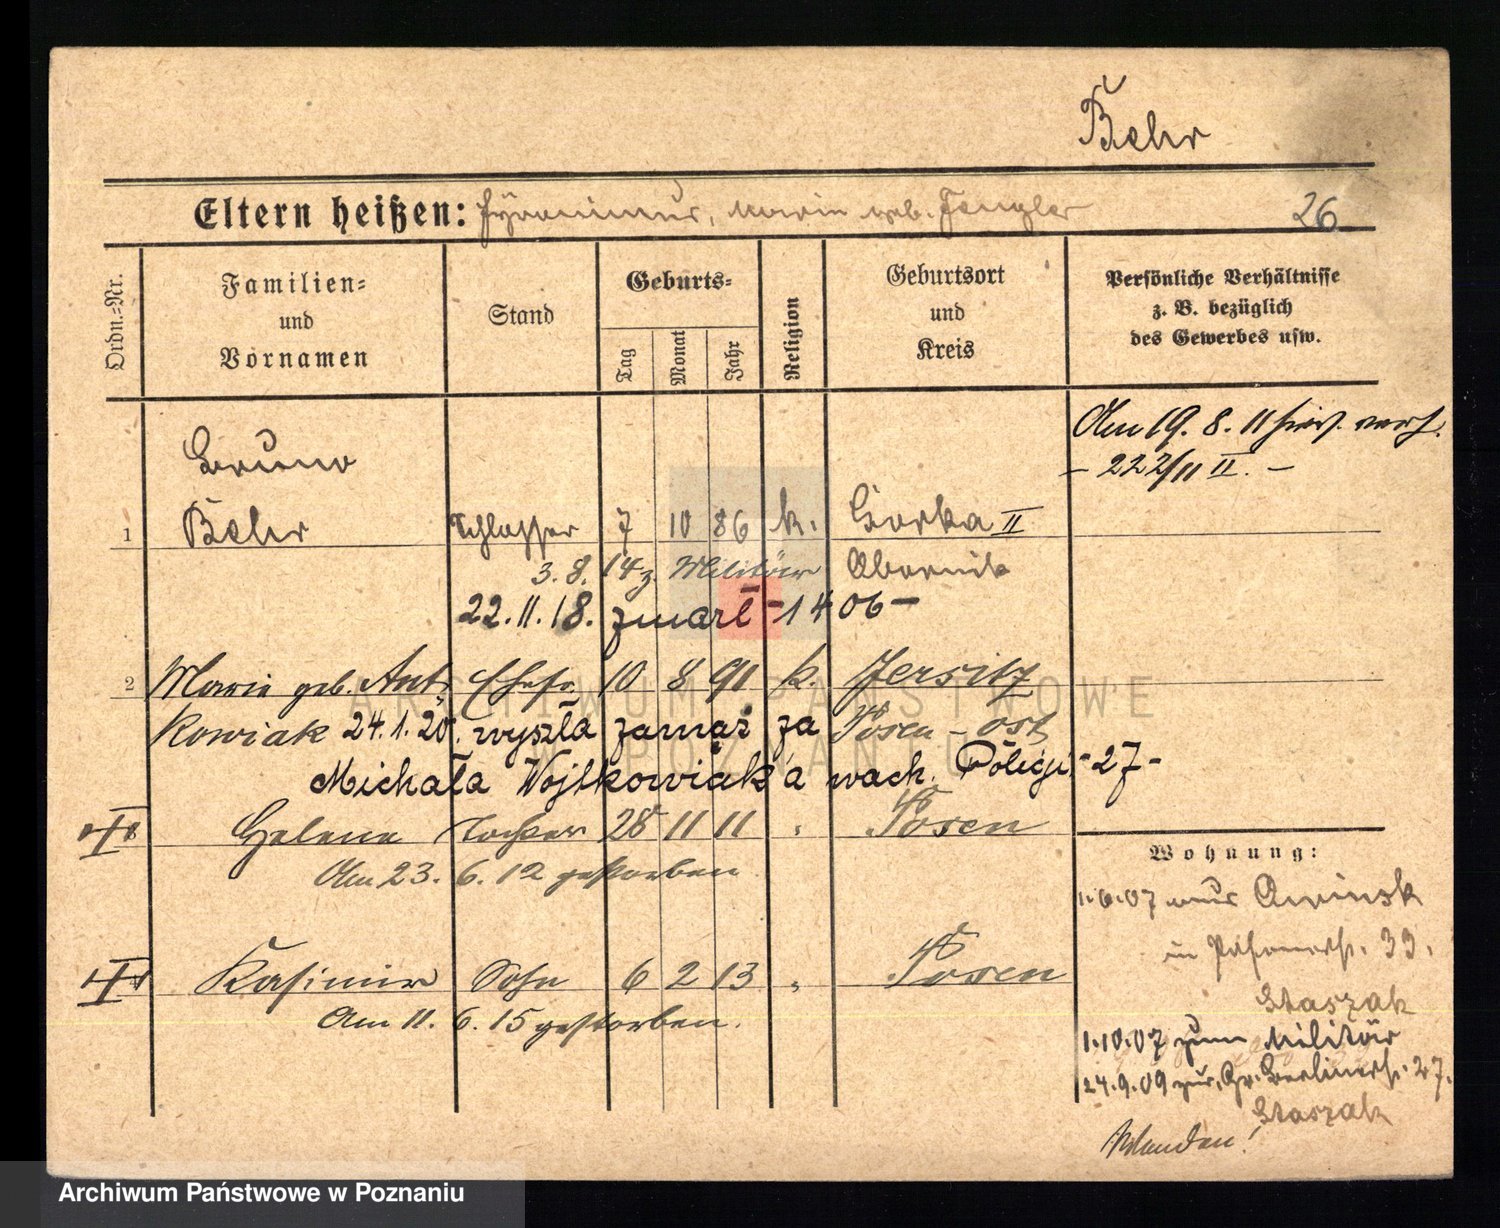 Behr
Eltern heißen: Hyronimus, Marie geb. Fengler 26
Ordn.=Nr.
Familien= und Vornamen
Stand
Geburts=
Tag
Monat
Jahr
Religion
Geburtsort und Kreis
Persönliche Verhältnisse
z. B. bezüglich
des Gewerbes usw.
Am 19. 8. 11 hier verh.
- 222/11 II. -
Bruno
1 Behr Schlosser 7 10 86 k. Gorka II
3. 8. 14 z. Militär Obornik
22. 11. 18. zmarł - 1406 -
2 Marie geb. Ant Ehefr. 10 8 91 k. Jersitz
kowiak 24. 1. 20. wyszła zamąż za Posen - Ost
Michała Wojtkowiak'a wach. Policji - 27 -
Helene Tochter 28 11 11 " Posen
Am 23. 6. 12 gestorben
Kasimir Sohn 6 2 13 " Posen
Am 11. 6. 15 gestorben.
Wohnung:
1. 6. 07 aus
in 33.
Staszak
1. 10. 07 zum Militär
24. 9. 09 zur. Gr. Berlinerstr. 27.
Staszak
ARCHIWUM PAŃSTWOWE
W POZNANIU
Archiwum Państwowe w Poznaniu